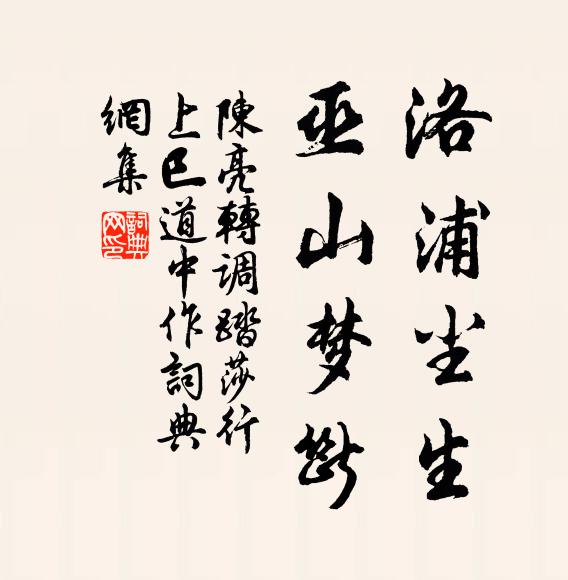 洛浦尘生
巫山梦断
陳亮轉調踏莎行
上巳道中作詞典
網集
詞典网印